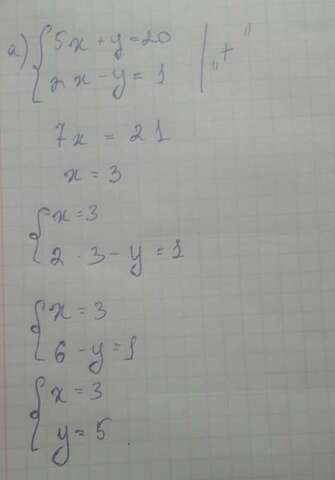 а) { 5x + y = 20 | „+"
{ 2x - y = 1
7x = 21
x = 3
{ x = 3
{ 2 · 3 - y = 1
{ x = 3
{ 6 - y = 1
{ x = 3
{ y = 5.